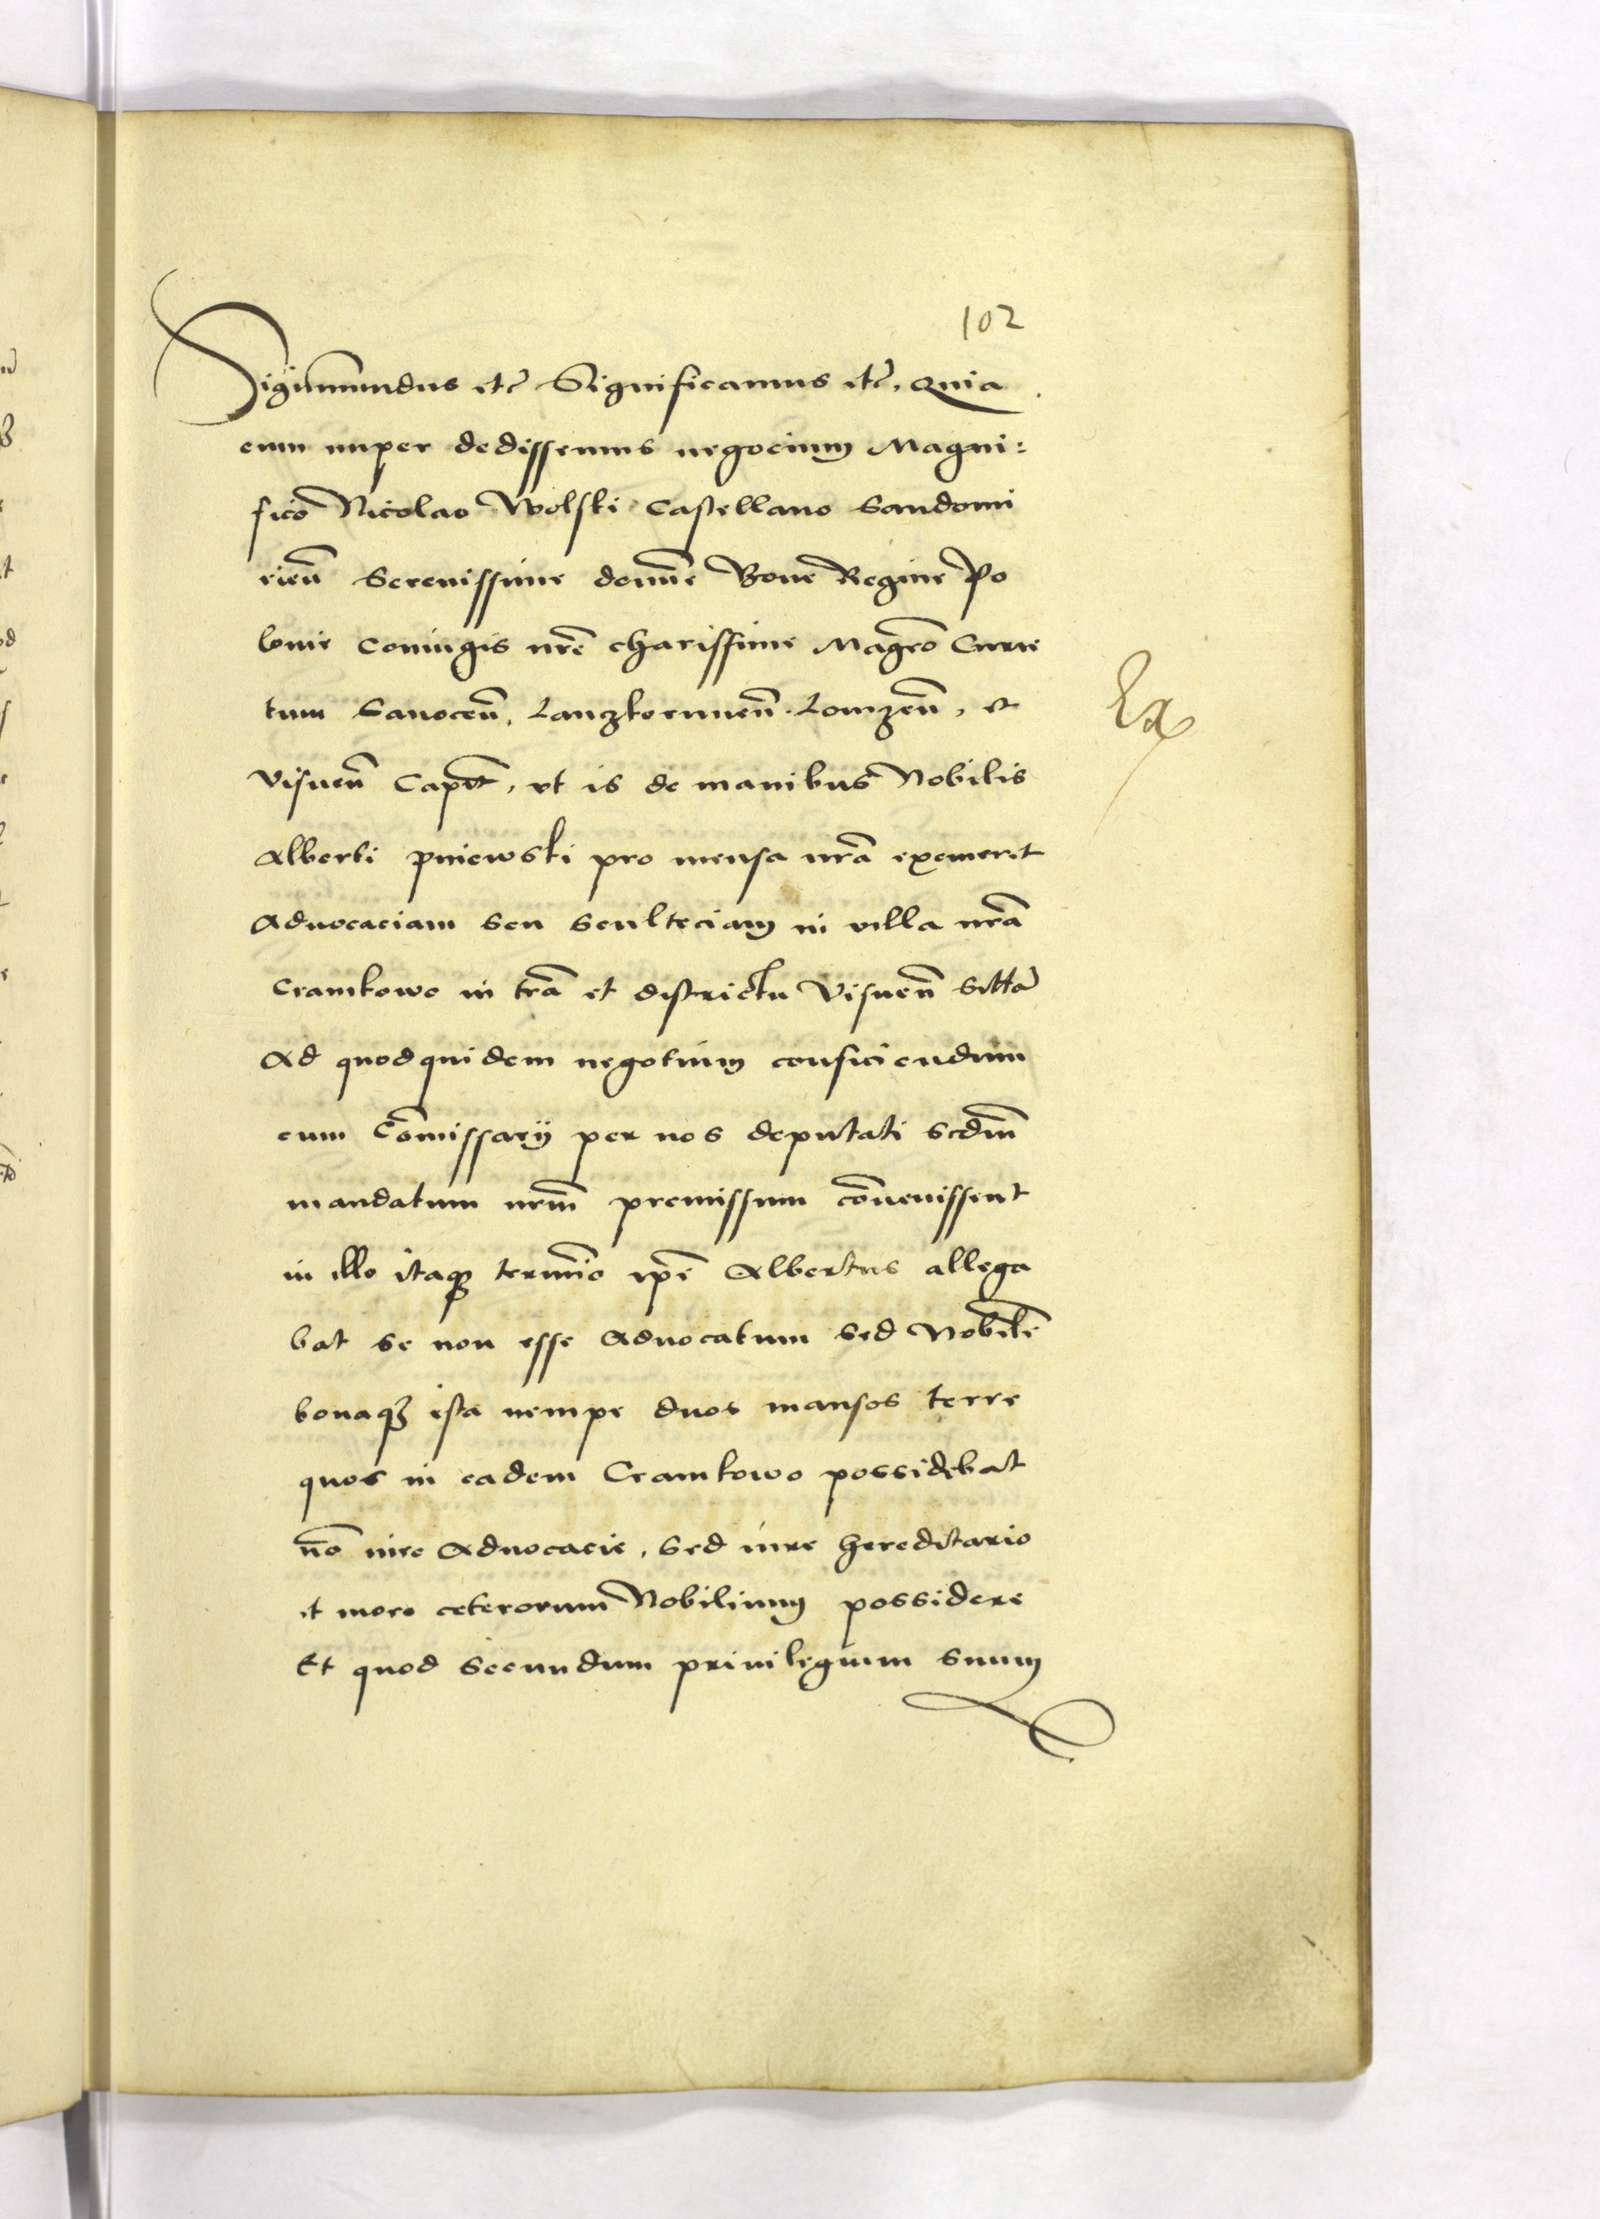 102
Sigismundus etc Significamus etc, Quia
cum nuper dedissemus negocium Magni:
fico Nicolao Wolski Castellano Sandomi
rien̄ Serenissime domn̄e Bone Regine Po
lonie Coniugis nr̄e charissime Mag̅ro Curie
tum Sanocen̄, Lanczkorunen̄. Lomzen̄, et
Visnen̄ Capt̄, ut is de manibus Nobilis
Alberti pniewski pro mensa nr̄a exemeret
Aduocaciam seu scultetiam in villa nr̄a
Cramkowo in tr̄a et districtu Visnen̄ sittā
Ad quod quidem negotium conficiendum
cum Com̄issarij per nos deputati scdm̄
mandatum nrm̄ premissum conuenissent
in illo itaq̨ termino ip̄e Albertus allega
bat se non esse Aduocatum sed Nobilē
bonaq̨ ista nempe duos mansos terre
quos in eadem Cramkowo possidebat
nō iure Aduocacie, sed iure hereditario
et more ceterorum Nobilium possidere
Et quod secundum priuilegium suum
Ex